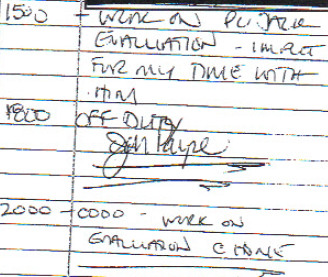 1500 - WORK ON
EVALUATION - IMPACT
FOR MY TIME WITH
HIM
1800 OFF DUTY
2000 - 0000 - WORK ON
EVALUATION @ HOME